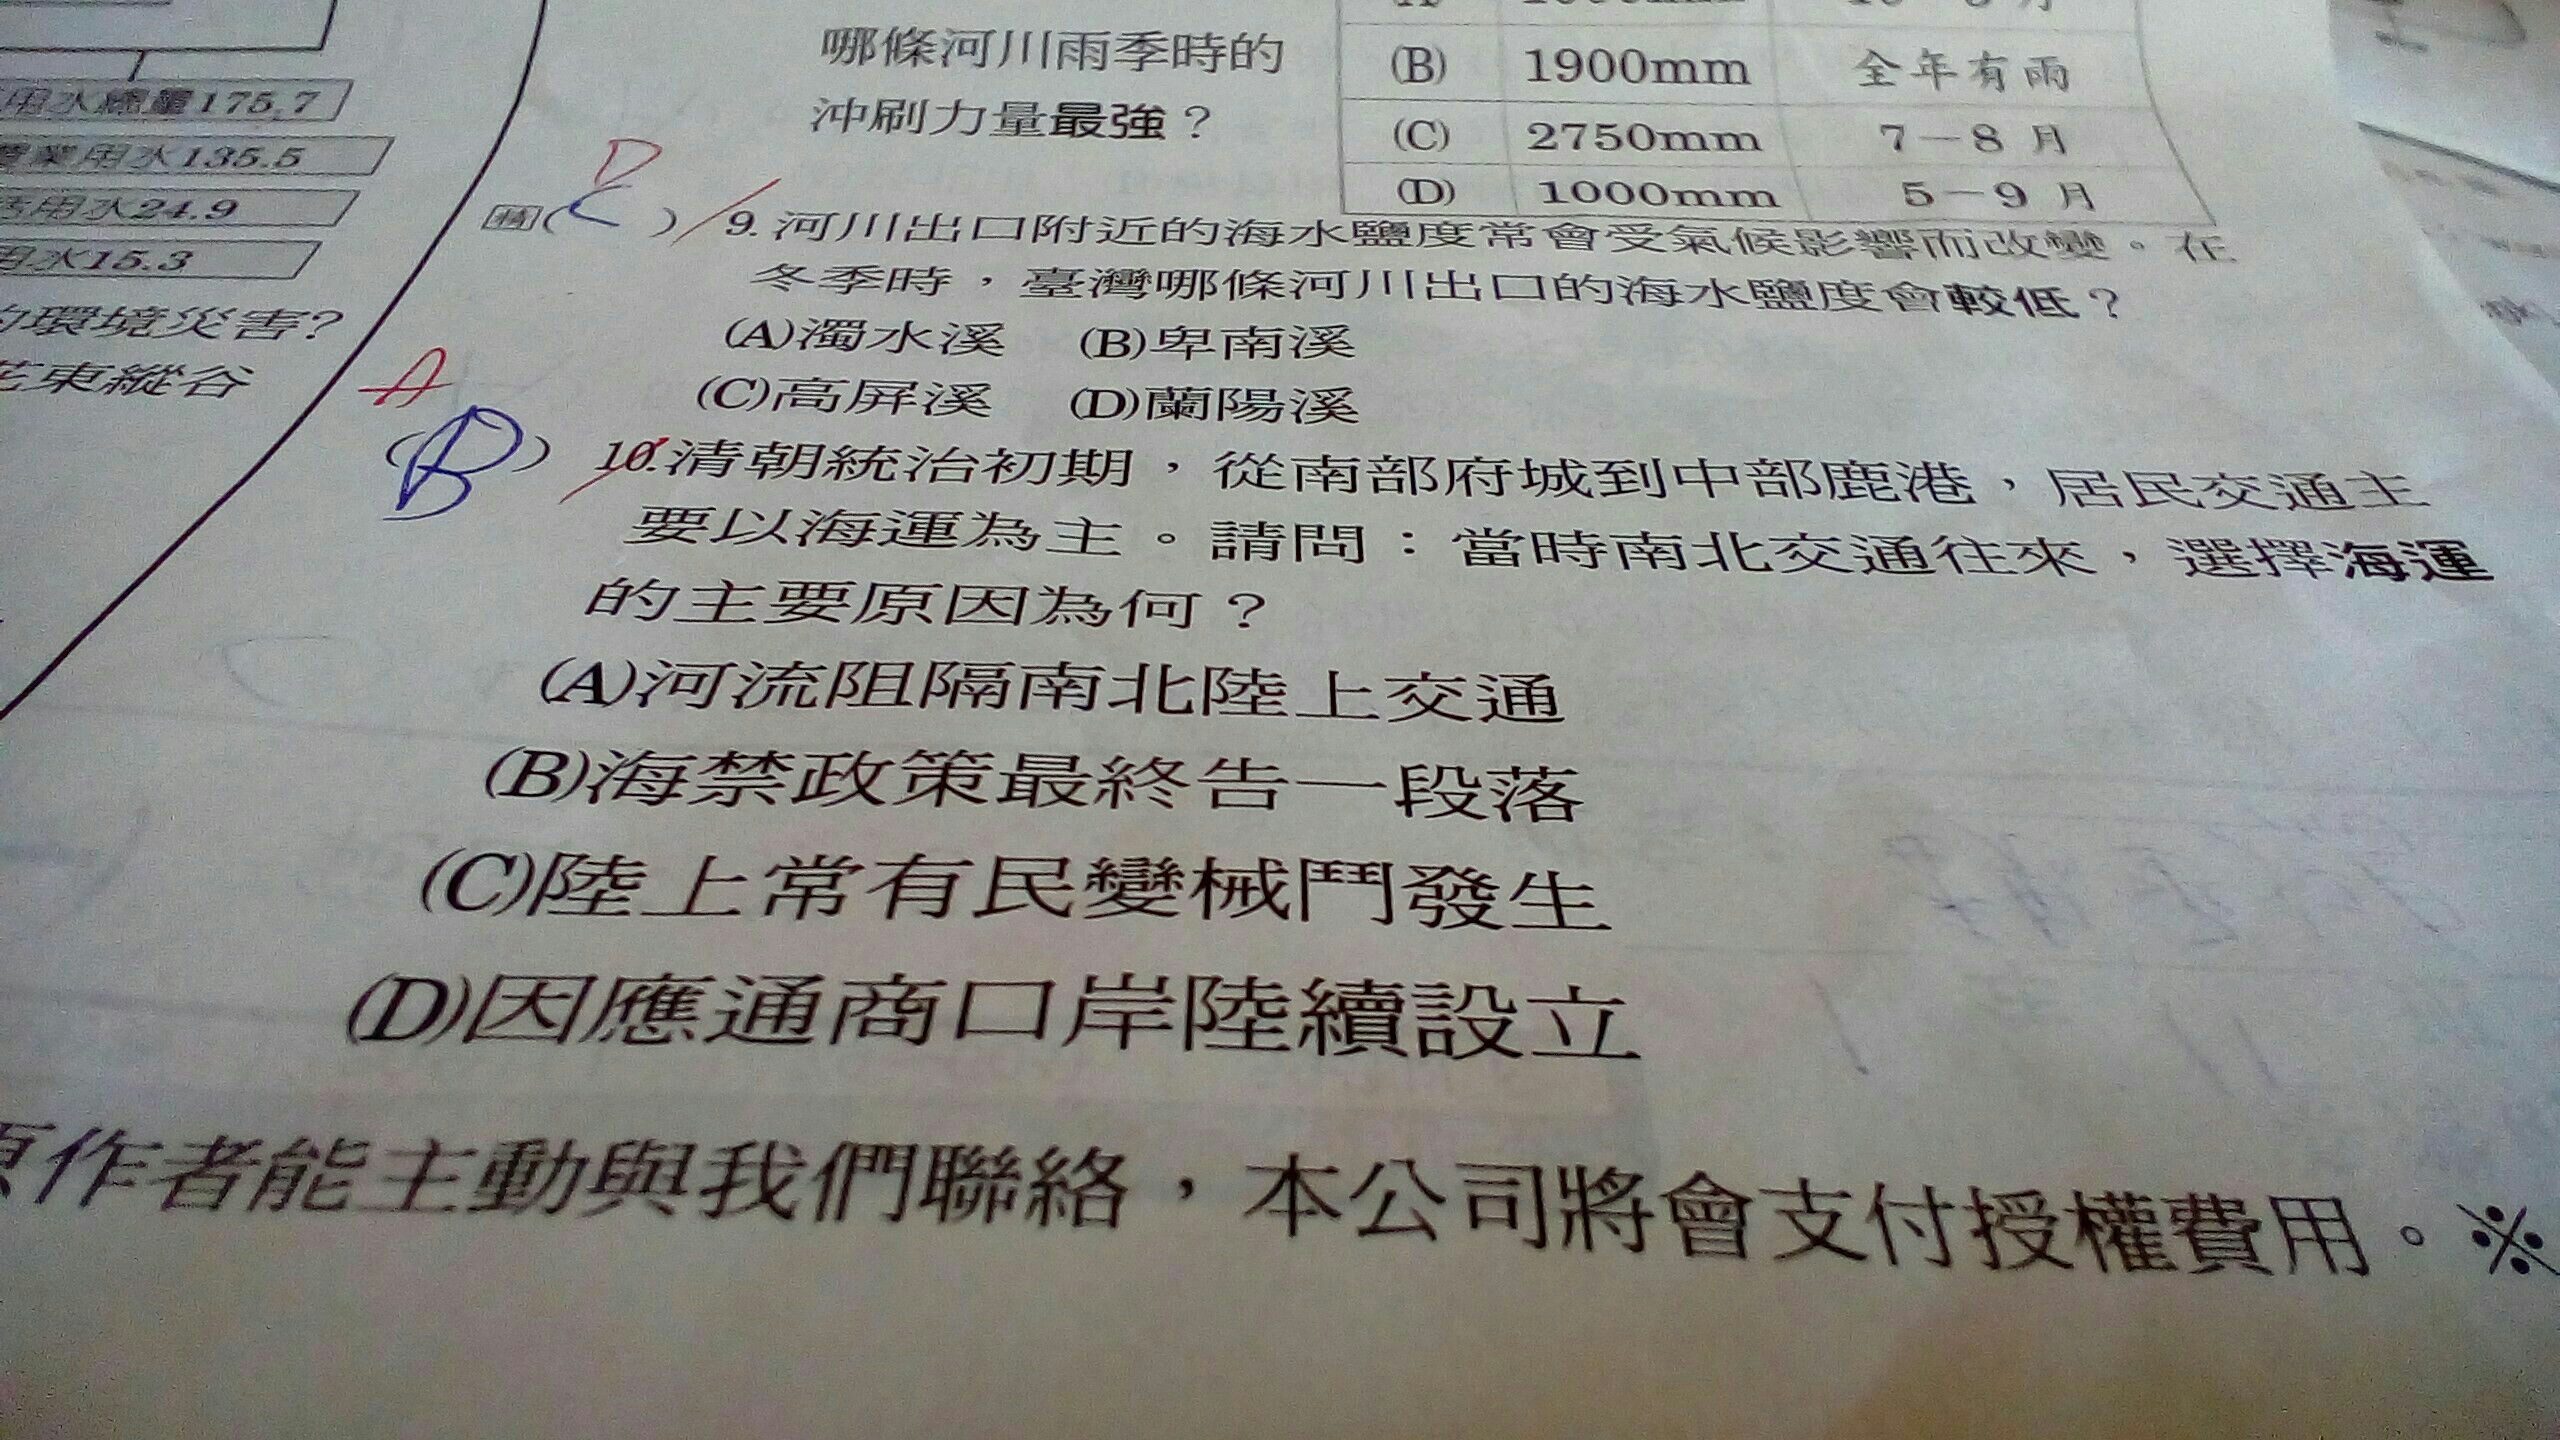 用水總量175.7
農業用水135.5
用水24.9
用水15.3
的環境災害?
花東縱谷
哪條河川雨季時的
沖刷力量最強？
(B) 1900mm 全年有雨
(C) 2750mm 7－8 月
(D) 1000mm 5－9 月
D
(C) 9. 河川出口附近的海水鹽度常會受氣候影響而改變。在
冬季時，臺灣哪條河川出口的海水鹽度會較低？
(A)濁水溪 (B)卑南溪
(C)高屏溪 (D)蘭陽溪
A
(B) 10.清朝統治初期，從南部府城到中部鹿港，居民交通主
要以海運為主。請問：當時南北交通往來，選擇海運
的主要原因為何？
(A)河流阻隔南北陸上交通
(B)海禁政策最終告一段落
(C)陸上常有民變械鬥發生
(D)因應通商口岸陸續設立
原作者能主動與我們聯絡，本公司將會支付授權費用。※